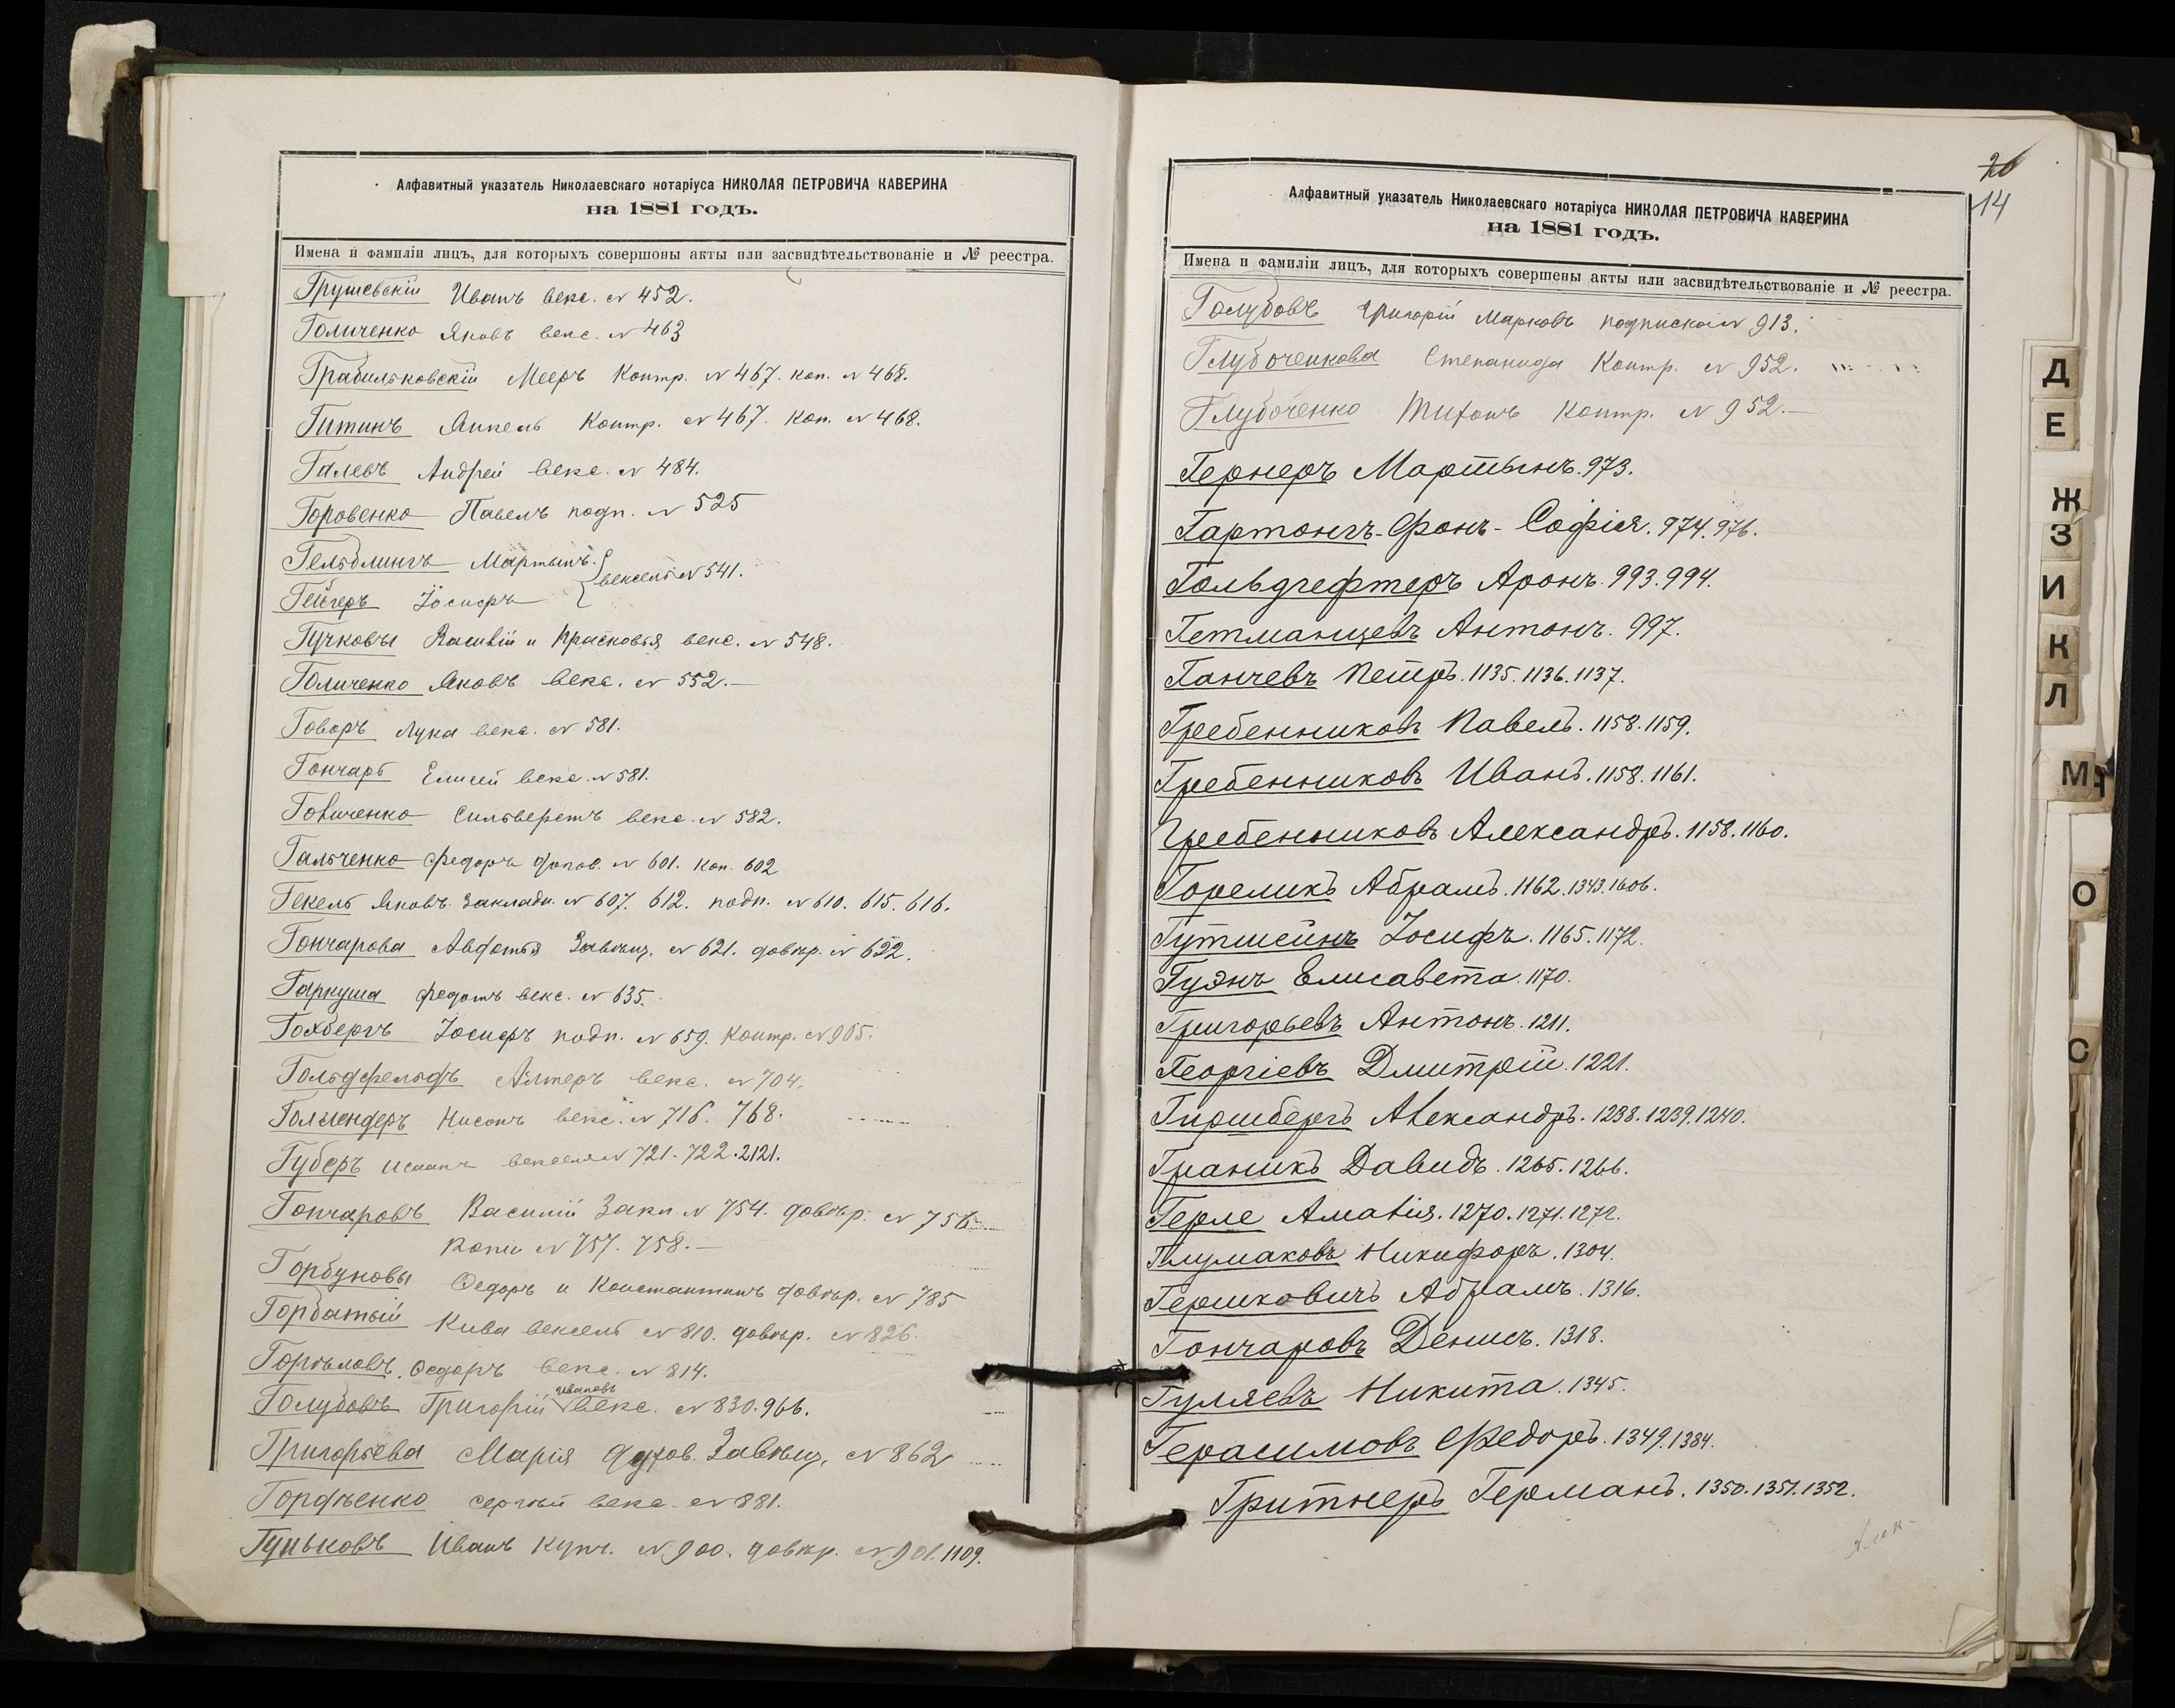 Алфавитный указатель Николаевскаго нотаріуса НИКОЛАЯ ПЕТРОВИЧА КАВЕРИНА
на 1881 годъ.
Имена и фамиліи лицъ, для которыхъ совершоны акты или засвидѣтельствованіе и № реестра.
Грушевскій Иванъ векс. № 452.
Голиченко Яковъ векс. № 463
Грабильковскій Мееръ Контр. № 467. коп. № 468.
Гитинъ Янкель Контр. № 467. Коп. № 468.
Галевъ Андрей векс. № 484.
Горовенко Павелъ подп. № 525
Гельблингъ Мартынъ.
вексель № 541.
Гейгеръ Іосифъ
Гучковы Василій и Прасковья векс. № 548.
Голиченко Яковъ векс. № 552.—
Говоръ Лука векс. № 581.
Гончаръ Елисей векс. № 581.
Говиченко Сильверстъ векс. № 582.
Гальченко Федоръ № 601. коп. 602
Гекель Яковъ закладн. № 607. 612. подп. № 610. 615. 616.
Гончарова Авдотья Завѣщ. № 621. довѣр. № 622.
Гаркуша Федотъ векс. № 635.
Гохбергъ Іосифъ подп. № 659. Контр. № 905.
Гольдфельдъ Алтеръ векс. № 704.
Голлендеръ Нисонъ векс. № 716. 768.
Губеръ Исаакъ векселя № 721. 722. 2121.
Гончаровъ Василій Закл. № 754. довѣр. № 756
Копіи № 757. 758.—
Горбуновы Ѳедоръ и Константинъ довѣр. № 785
Горбатый Кива вексель № 810. довѣр. № 826.
Ѳедоръ векс. № 814.
Ивановъ
Голубовъ Григорій векс. № 830. 966.
Григорьева Марія духов. Завѣщ. № 862
Гордѣенко Сергѣй векс. № 881.
Гуньковъ Иванъ купч. № 900. довѣр. № 901. 1109.
20
14
Алфавитный указатель Николаевскаго нотаріуса НИКОЛАЯ ПЕТРОВИЧА КАВЕРИНА
на 1881 годъ.
Имена и фамиліи лицъ, для которыхъ совершены акты или засвидѣтельствованіе и № реестра.
Голубовъ Григорій Марковъ подписка № 913.
Глубоченкова Степанида Контр. № 952.
Глубоченко Тихонъ Контр. № 952.—
Гернеръ Мартынъ. 973.
Гартонгъ-Фонъ-Софія. 974. 976.
Гольдгефтеръ Аронъ. 993. 994.
Гетманцевъ Антонъ. 997.
Ганчевъ Петръ. 1135. 1136. 1137.
Гребенниковъ Павелъ. 1158. 1159.
Гребенниковъ Иванъ. 1158. 1161.
Гребенниковъ Александръ. 1158. 1160.
Гореликъ Абрамъ. 1162. 1343. 1606.
Гутшейнъ Іосифъ. 1165. 1172.
Гуэнъ Елисавета. 1170.
Григорьевъ Антонъ. 1211.
Георгіевъ Дмитрій. 1221.
Гиршбергъ Александръ. 1238. 1239. 1240.
Граникъ Давидъ. 1265. 1266.
Герле Амалія. 1270. 1271. 1272.
Глумаковъ Никифоръ. 1304.
Гершковичъ Абрамъ. 1316.
Гончаровъ Денисъ. 1318.
Гуляевъ Никита. 1345.
Герасимовъ Федоръ. 1349. 1384.
Гритнеръ Германъ. 1350. 1351. 1352.
Д
Е
Ж
З
И
К
Л
М
О
С